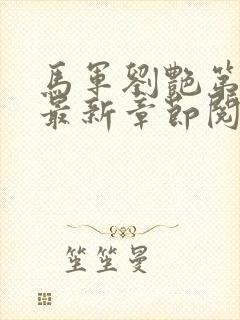 馬軍劉艷第
最新章節閱
笙笙曼